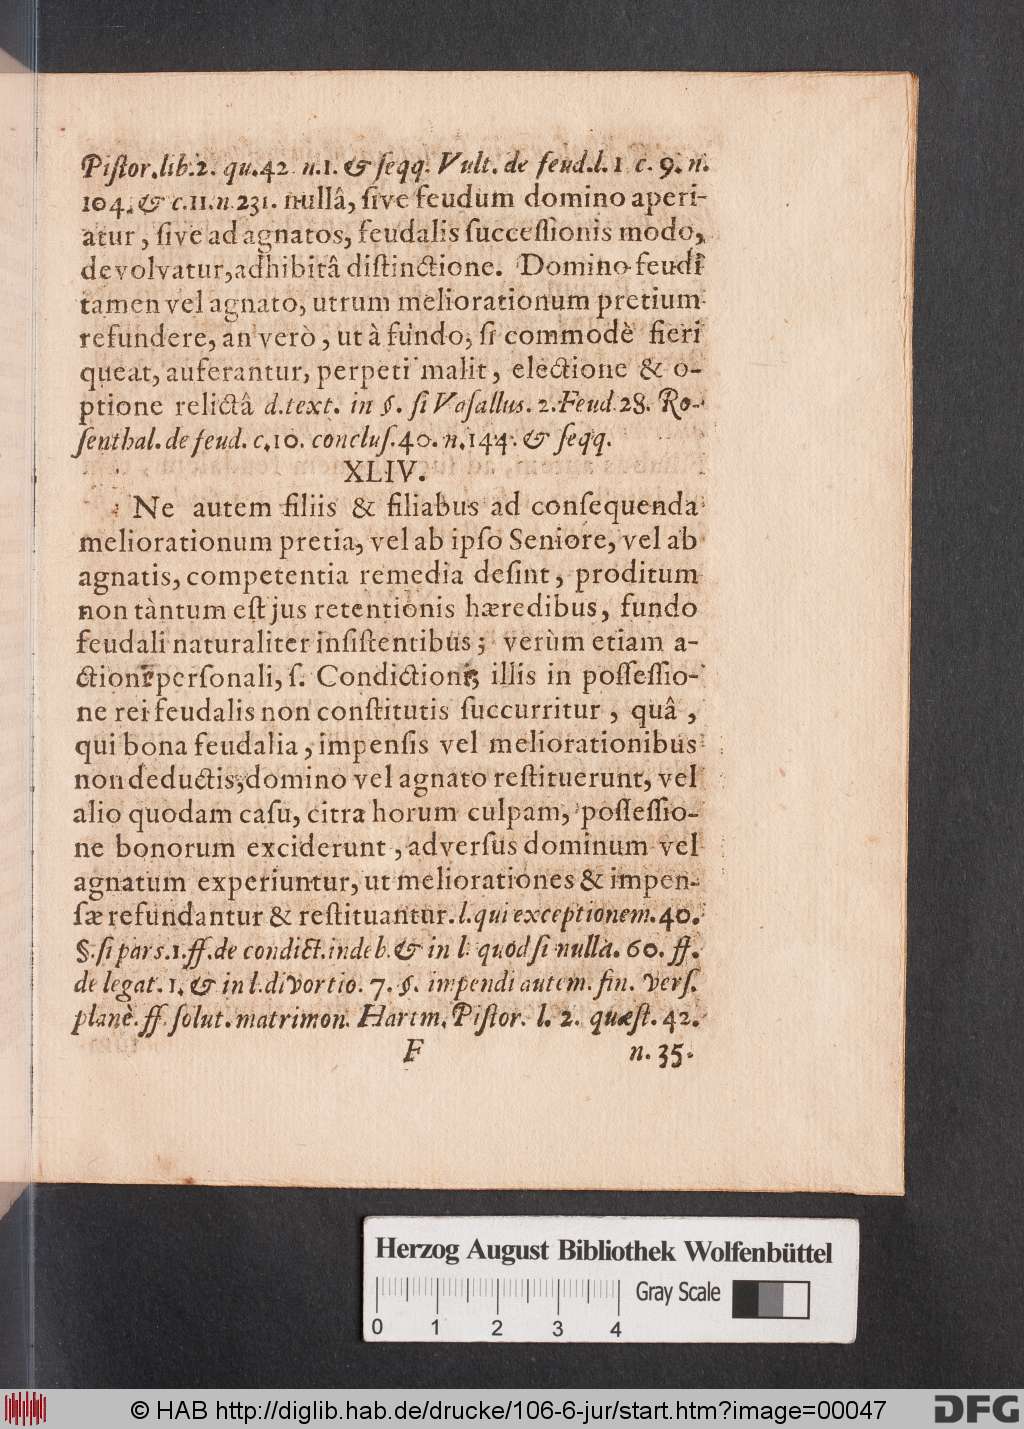 Piſtor. lib. 2. qu. 42 n. 1. & ſeqq. Vult. de feud. l. 1 c. 9. n.
104. & c. 11. n 231. nullâ, ſive feudum domino aperi-
atur, ſive ad agnatos, feudalis ſucceſſionis modo,
devolvatur, adhibitâ diſtinctione. Domino feudi
tamen vel agnato, utrum meliorationum pretium
refundere, an verò, ut à fundo, ſi commodè fieri
queat, auferantur, perpeti malit, electione & o-
ptione relictâ d. text. in §. ſi Vaſallus. 2. Feud 28. Ro-
ſenthal. de feud. c. 10. concluſ. 40. n. 144. & ſeqq.
XLIV.
Ne autem filiis & filiabus ad conſequenda
meliorationum pretia, vel ab ipſo Seniore, vel ab
agnatis, competentia remedia deſint, proditum
non tàntum eſt jus retentionis hæredibus, fundo
feudali naturaliter inſiſtentibus; verùm etiam a-
ctione perſonali, ſ. Condictione, illis in poſſeſſio-
ne rei feudalis non conſtitutis ſuccurritur, quâ,
qui bona feudalia, impenſis vel meliorationibus
non deductis, domino vel agnato reſtituerunt, vel
alio quodam caſu, citra horum culpam, poſſeſſio-
ne bonorum exciderunt, adverſus dominum vel
agnatum experiuntur, ut meliorationes & impen-
ſæ refundantur & reſtituantur. l. qui exceptionem. 40.
§. ſi pars. 1. ff. de condict. indeb. & in l. quod ſi nulla. 60. ff.
de legat. 1. & in l. divortio. 7. §. impendi autem. fin. verſ.
planè. ff. ſolut. matrimon. Hartm. Piſtor. l. 2. quæſt. 42.
F n. 35.
Herzog August Bibliothek Wolfenbüttel
Gray Scale
0 1 2 3 4
© HAB http://diglib.hab.de/drucke/106-6-jur/start.htm?image=00047
DFG